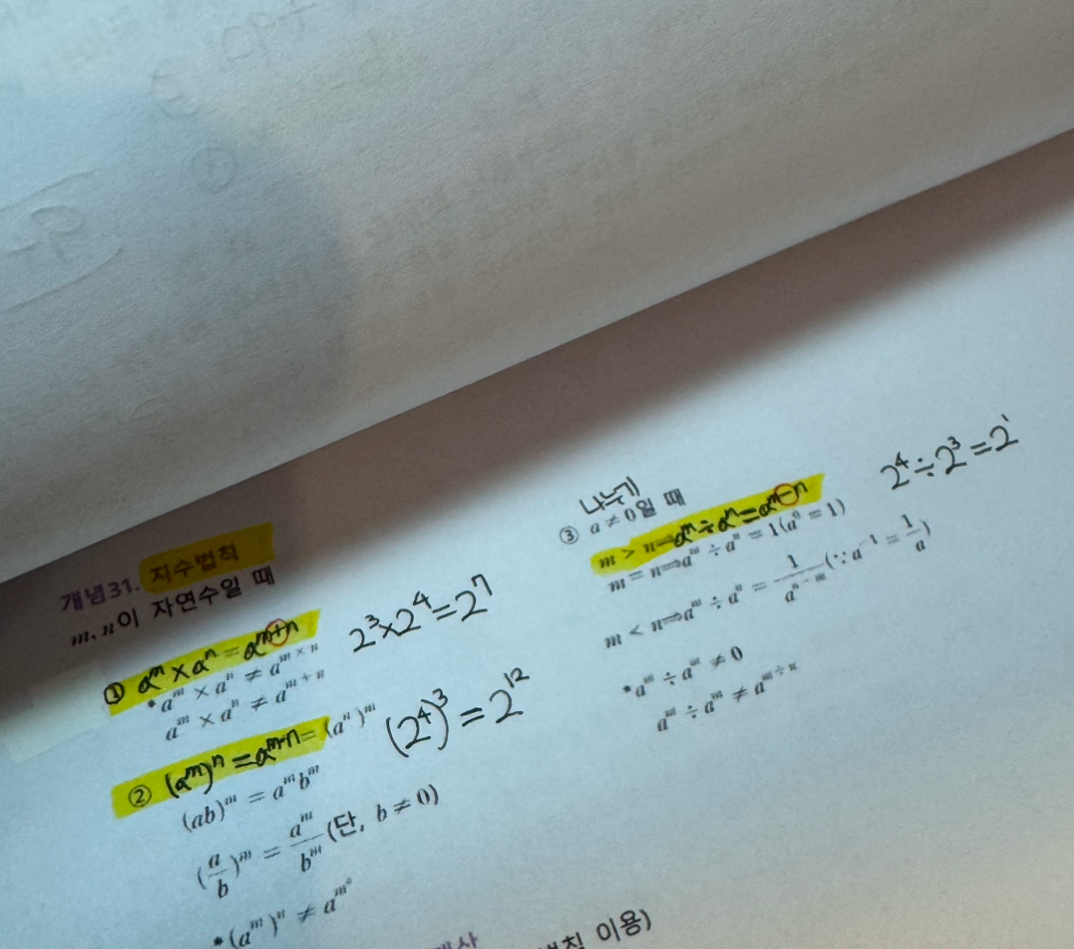 개념31. 지수법칙
m, n이 자연수일 때
① aᵐ × aⁿ = aᵐ⁺ⁿ 2³×2⁴=2⁷
*aᵐ × aⁿ ≠ aᵐ ˣ ⁿ
aᵐ × aⁿ ≠ aᵐ + aⁿ
② (aᵐ)ⁿ = aᵐⁿ = (aⁿ)ᵐ (2⁴)³ = 2¹²
(ab)ᵐ = aᵐbᵐ
(a/b)ᵐ = aᵐ/bᵐ (단, b ≠ 0)
*(aᵐ)ⁿ ≠ a^(mⁿ)
나누기
③ a ≠ 0일 때
m > n⇒aᵐ ÷ aⁿ = aᵐ⁻ⁿ 2⁴÷2³=2¹
m = n⇒aᵐ ÷ aⁿ = 1(a⁰ = 1)
m < n⇒aᵐ ÷ aⁿ = 1/aⁿ⁻ᵐ (∵ a⁻¹ = 1/a)
*aᵐ ÷ aᵐ ≠ 0
aᵐ ÷ aⁿ ≠ a^(m÷n)
이용)